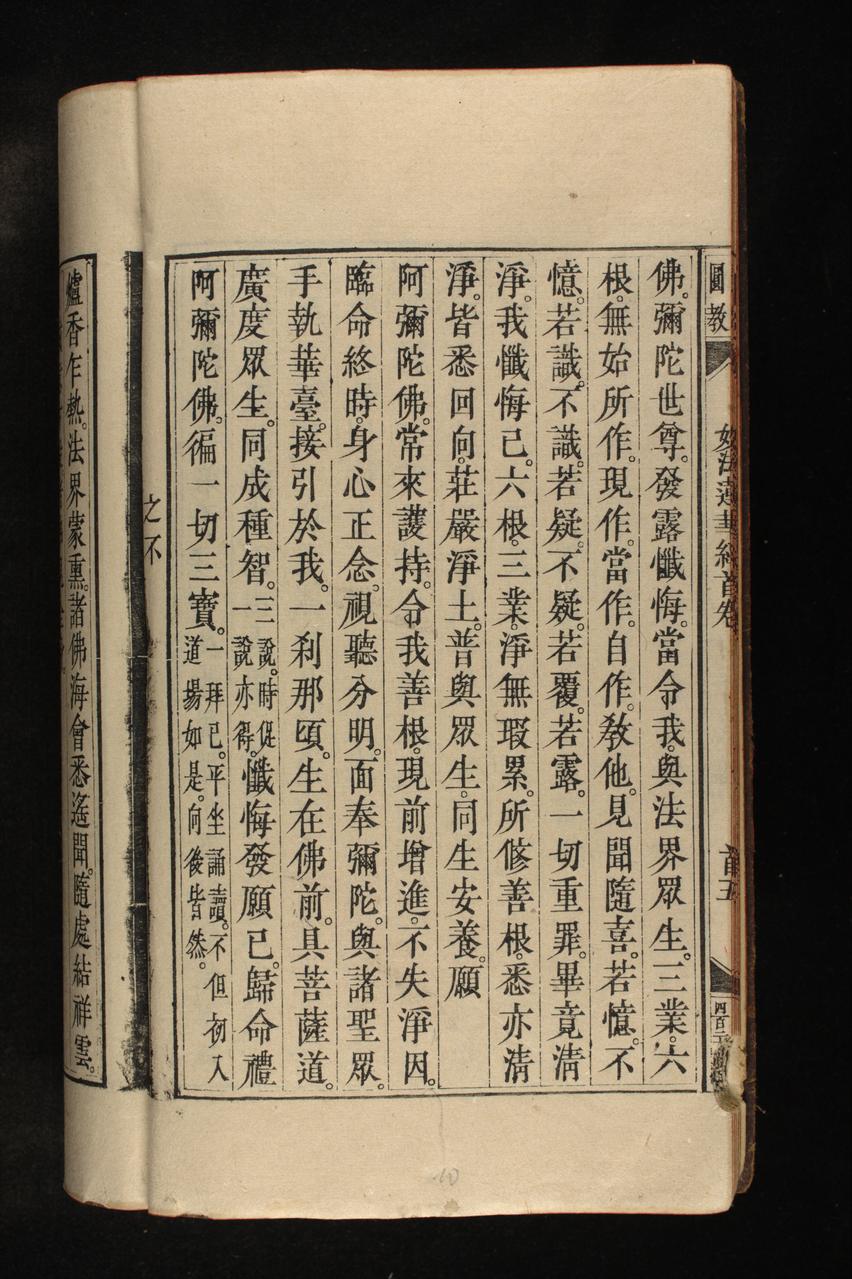 圓教
妙法蓮華經首卷
首五
佛。彌陀世尊。發露懺悔。當令我。與法界眾生。三業。六
根。無始所作。現作。當作。自作。教他。見聞隨喜。若憶。不
憶。若識。不識。若疑。不疑。若覆。若露。一切重罪。畢竟清
淨。我懺悔已。六根。三業。淨無瑕累。所修善根。悉亦清
淨。皆悉回向。莊嚴淨土。普與眾生。同生安養。願
阿彌陀佛。常來護持。令我善根。現前增進。不失淨因。
臨命終時。身心正念。視聽分明。面奉彌陀。與諸聖眾。
手執華臺。接引於我。一刹那頃。生在佛前。具菩薩道。
廣度眾生。同成種智。三說。時促一說亦得。懺悔發願已。歸命禮
阿彌陀佛。徧一切三寶。一拜已。平坐誦讀。不但初入道場如是。向後皆然。
之不
爐香乍熱。法界蒙熏。諸佛海會悉遙聞。隨處結祥雲。